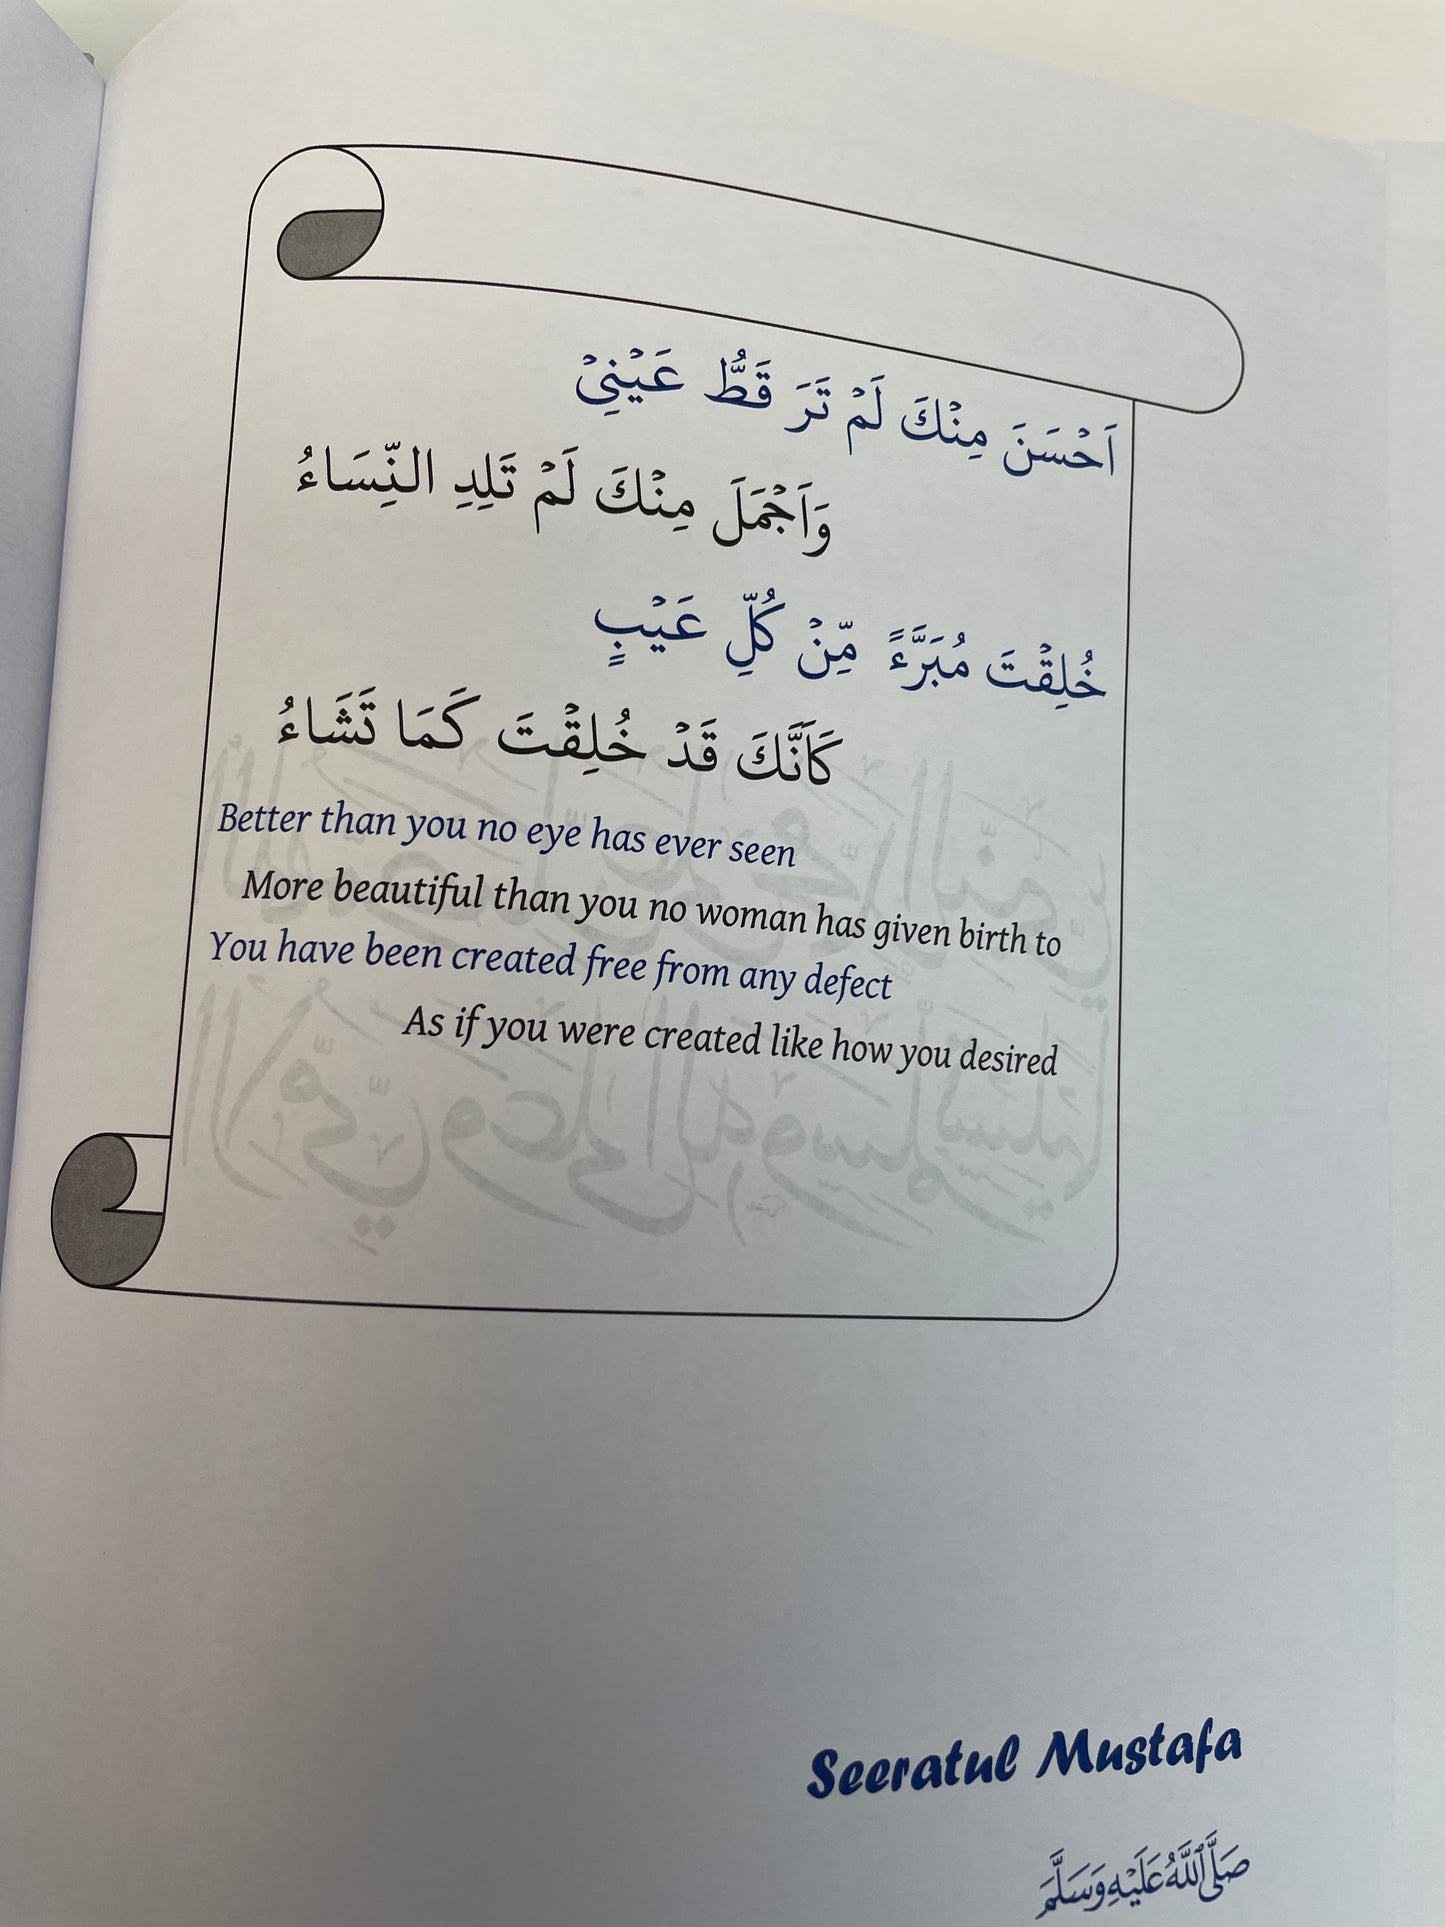 اَحْسَنَ مِنْكَ لَمْ تَرَ قَطُّ عَيْنِيْ
وَاَجْمَلَ مِنْكَ لَمْ تَلِدِ النِّسَاءُ
خُلِقْتَ مُبَرَّءً مِّنْ كُلِّ عَيْبٍ
كَاَنَّكَ قَدْ خُلِقْتَ كَمَا تَشَاءُ
Better than you no eye has ever seen
More beautiful than you no woman has given birth to
You have been created free from any defect
As if you were created like how you desired
Seeratul Mustafa
صَلَّى اللهُ عَلَيْهِ وَسَلَّمَ